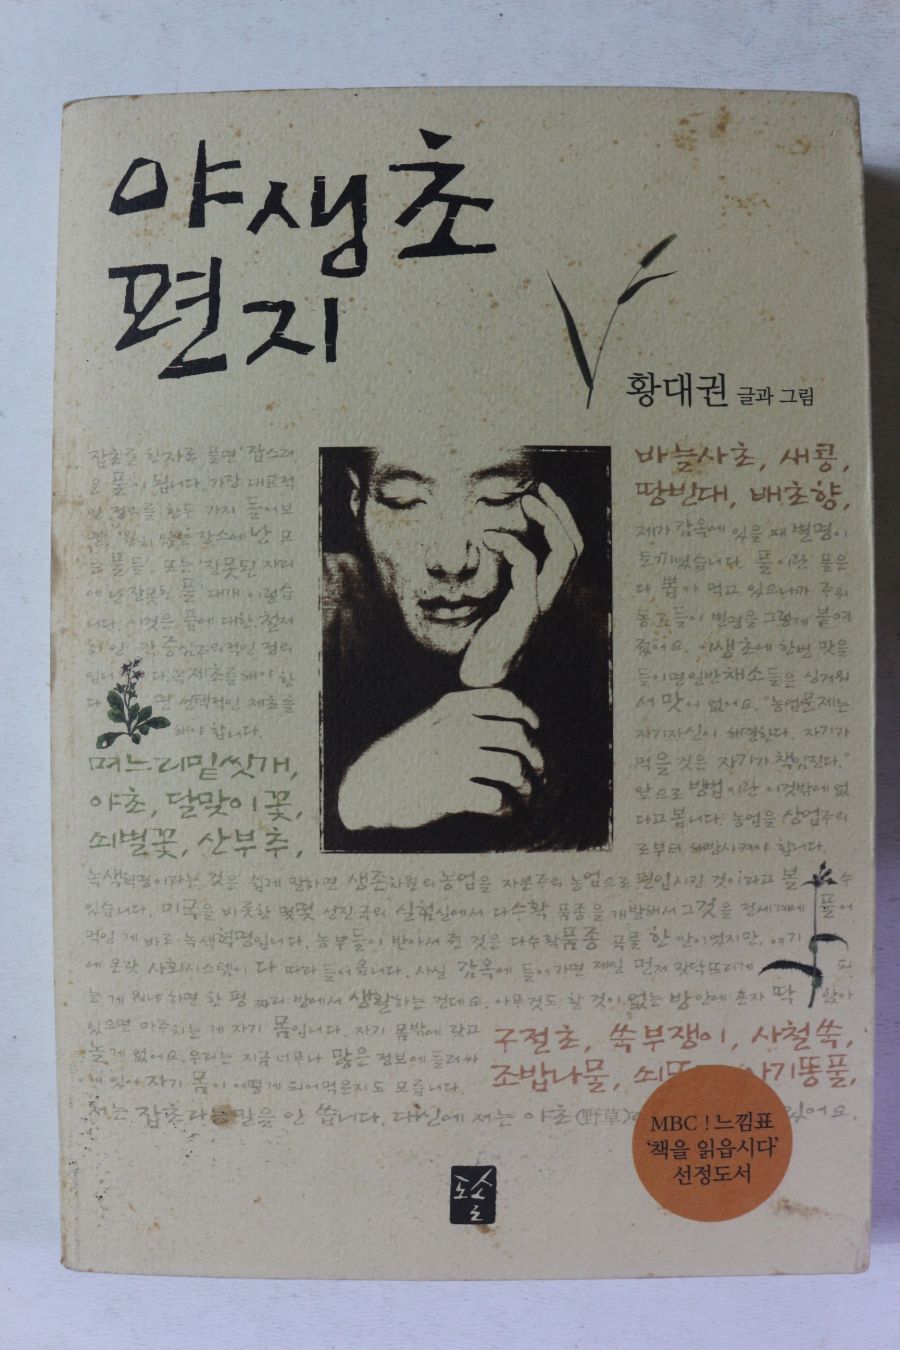 야생초
편지
황대권 글과 그림
잡초를 한자로 풀면 '잡스러
운 풀'이 됩니다. 가장 대표적
인 정의를 한두 가지 들어보
면, '원치 않는 장소에 난 모
든 풀들', 또는 '잘못된 자리
에 난 잘못된 풀' 대개 이렇습
니다. 이것은 풀에 대한 철저
히 인간 중심주의적인 정의
입니다. 꼭 제초를 해야 한
다면 선택적인 제초를
해야 합니다.
며느리밑씻개,
야초, 달맞이꽃,
쇠별꽃, 산부추,
바늘사초, 새콩,
땅빈대, 배초향,
제가 감옥에 있을 때 별명이
토끼였습니다. 풀이란 풀은
다 뽑아 먹고 있으니까 주위
동료들이 별명을 그렇게 붙여
줬어요. 야생초에 한번 맛을
들이면 일반 채소들은 싱거워
서 맛이 없어요. "농업문제는
자기자신이 해결한다. 자기가
먹을 것은 자기가 책임진다."
앞으로 방법이란 이것밖에 없
다고 봅니다. 농업을 상업주의
로부터 해방시켜야 합니다.
녹색혁명이라는 것은 쉽게 말하면 생존차원의 농업을 자본주의 농업으로 편입시킨 것이라고 볼 수
있습니다. 미국을 비롯한 몇몇 선진국의 실험실에서 다수확 품종을 개발해서 그것을 전세계에 풀어
먹인 게 바로 녹색혁명입니다. 농부들이 받아서 쥔 것은 다수확품종 곡물 한 알이었지만, 여기
에 온갖 사회시스템이 다 따라 들어옵니다. 사실 감옥에 들어가면 제일 먼저 맞닥뜨리게 되
는 게 뭐냐 하면 한 평 짜리 방에서 생활하는 건데요. 아무것도 할 것이 없는 방안에 혼자 딱 앉아
있으면 마주치는 게 자기 몸입니다. 자기 몸밖에 갖고
놀 게 없어요. 우리는 지금 너무나 많은 정보에 둘러싸
여 있어 자기 몸이 어떻게 되어먹은지도 모릅니다.
구절초, 쑥부쟁이, 사철쑥,
조밥나물, 기똥풀,
저는 잡초라는 말을 안 씁니다. 대신에 저는 야초(野草) 있어요.
MBC ! 느낌표
'책을 읽읍시다'
선정도서
도솔